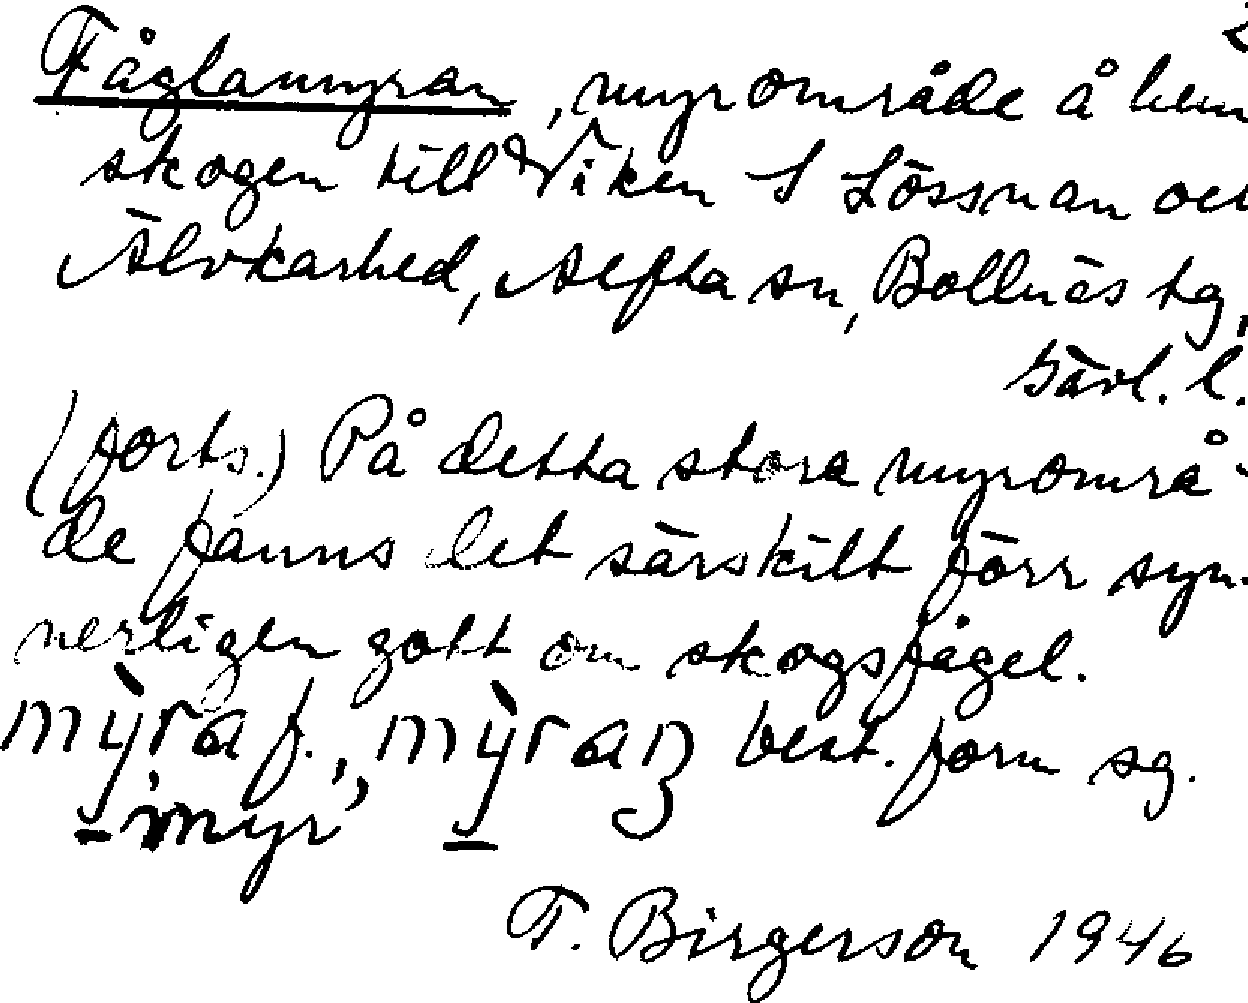 2
Fåglamyran, myrområde å hem
skogen till Viken S Lössnan och
Älvkarhed, Alfta sn, Bollnäs tg,
Gävl. l.
(forts.) På detta stora myrområ-
de fanns det särskilt förr syn-
nerligen gott om skogsfågel.
mỳra f., mỳraŋ best. form sg.
'myr'
T. Birgerson 1946